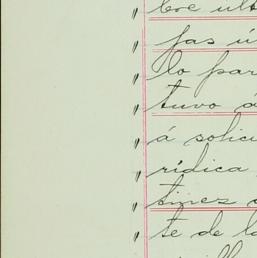 bre ult
jas ú
lo par
tuvo á
á solici
rídica
tinez
te de la